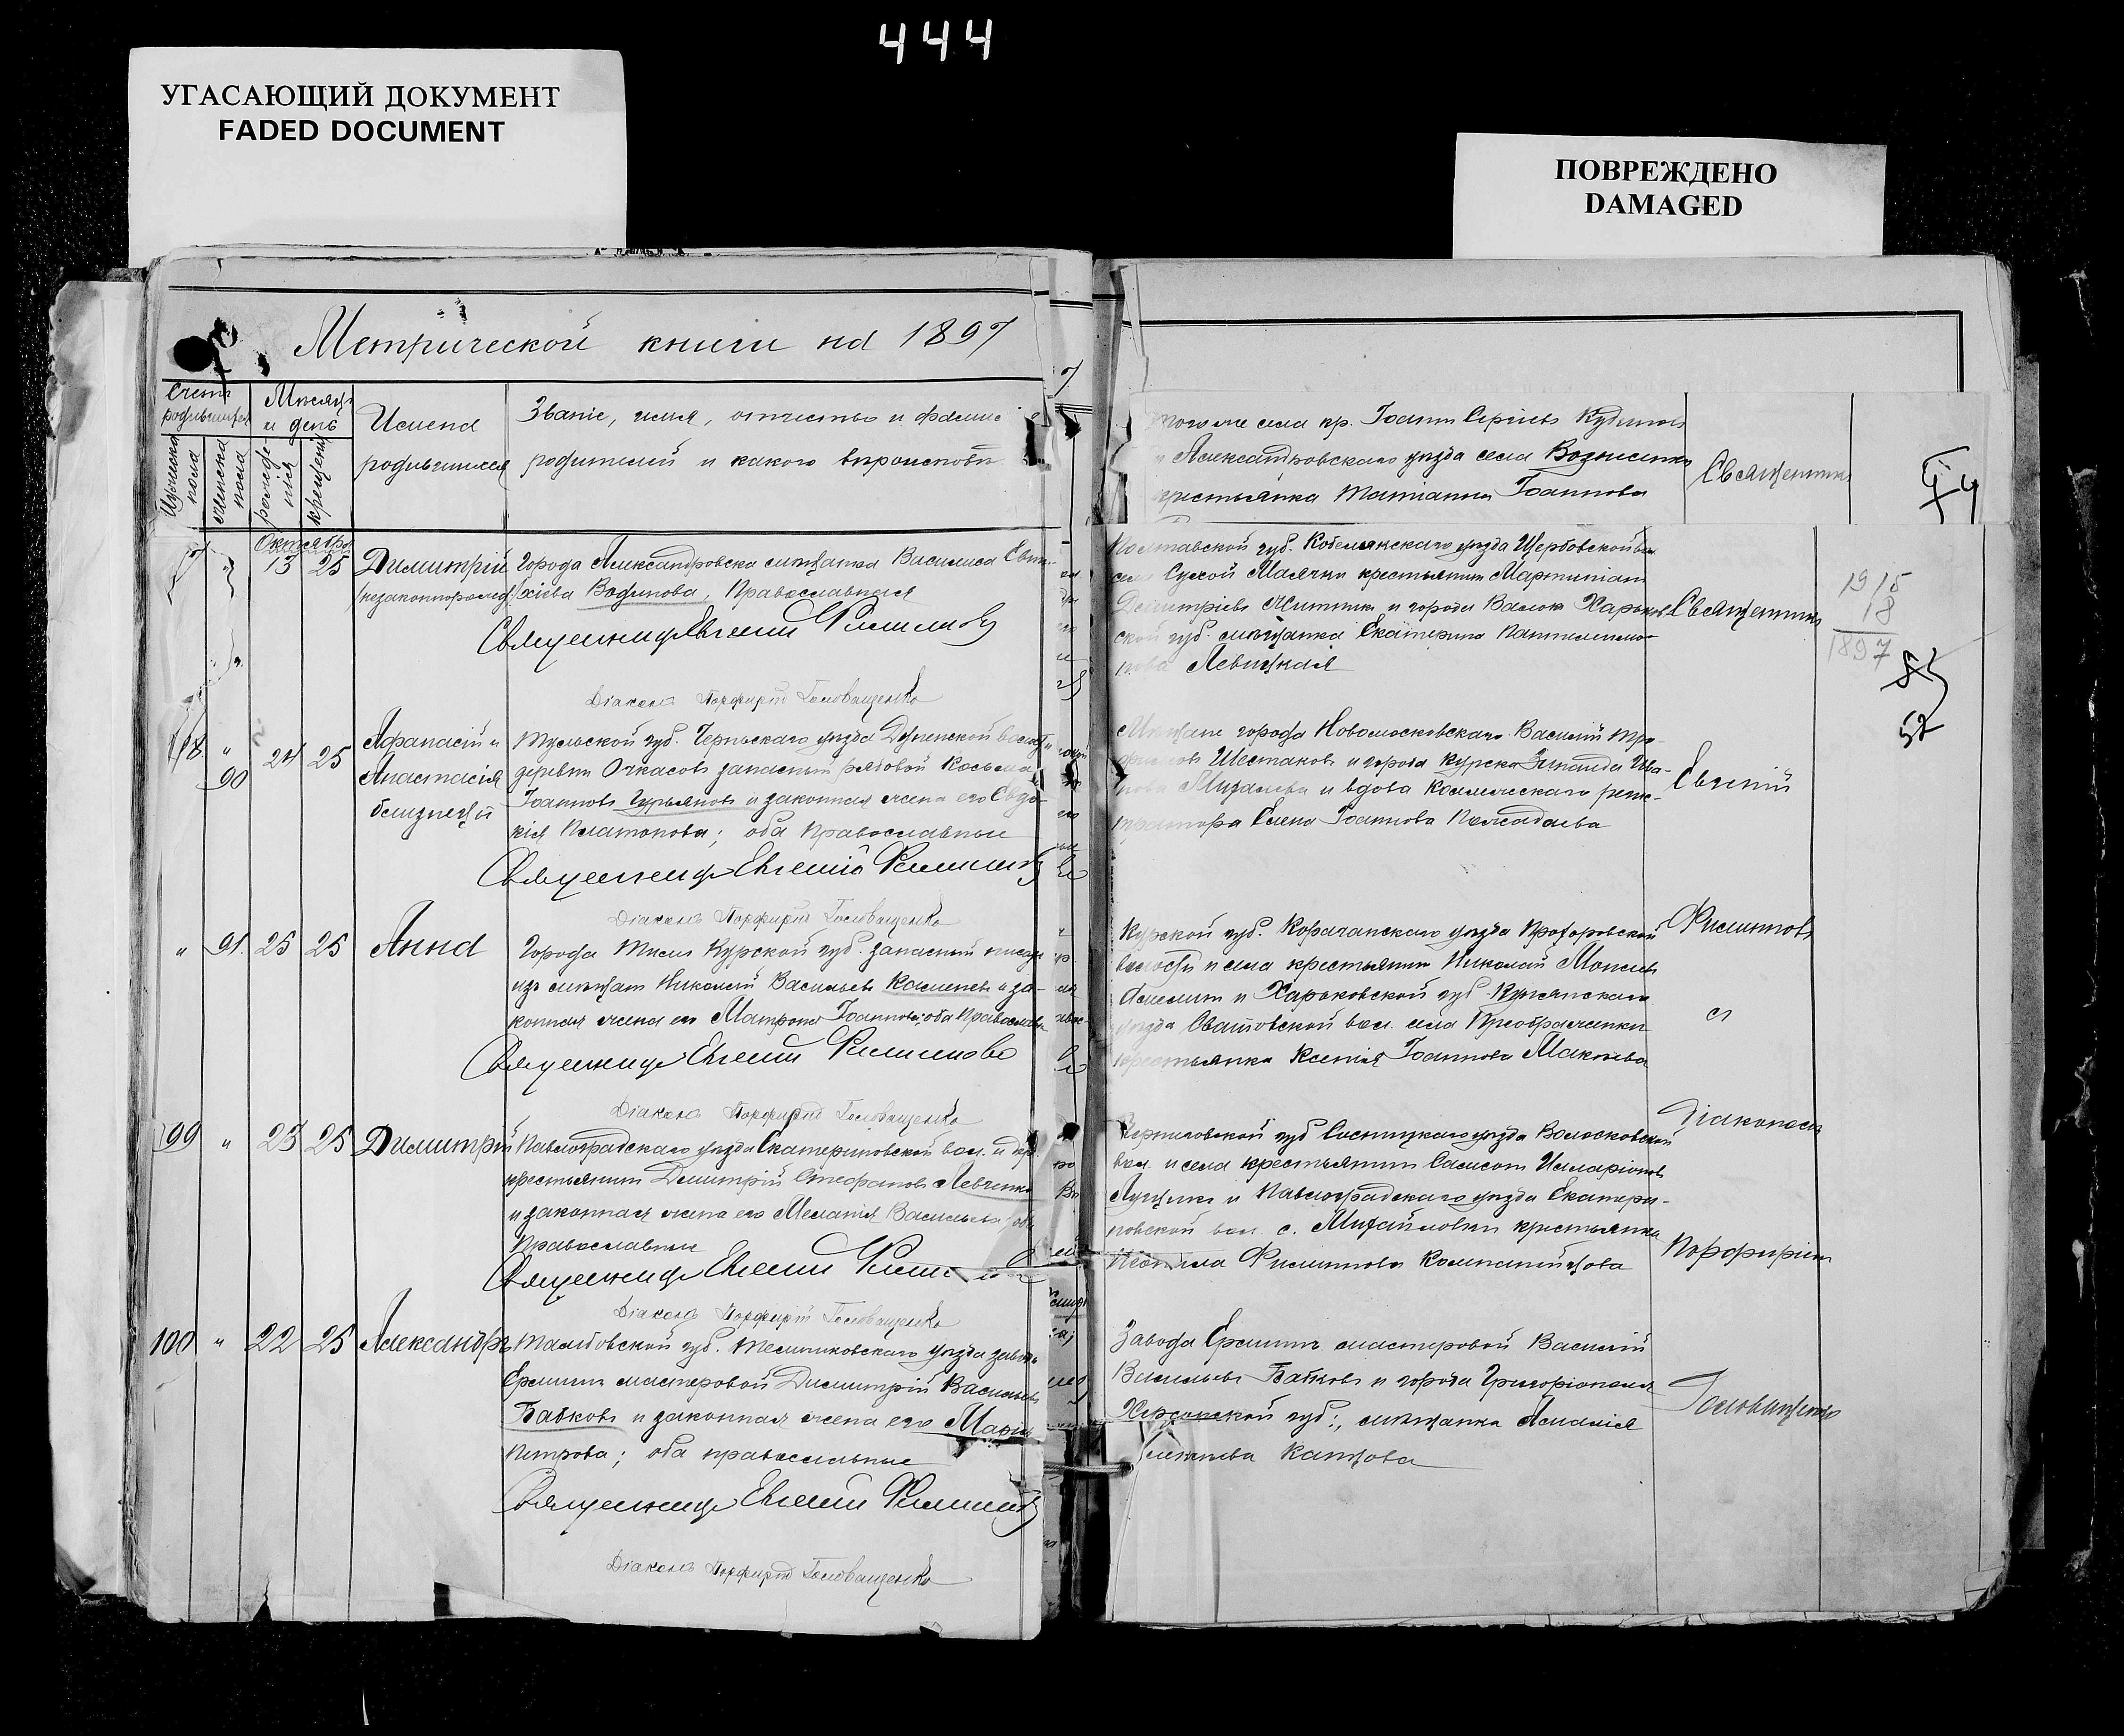 444
УГАСАЮЩИЙ ДОКУМЕНТ
FADED DOCUMENT
ПОВРЕЖДЕНО
DAMAGED
Метрической книги на 1897
Счетъ родившихся
Мѣсяцъ и день
Имена
родившихся
Званіе, имя, отчество и фамил
родителей и какого вѣроисповѣ
Мужска пола
Женска пола
рожденія
крещенія
Октябрь
7 " 13 25 Димитрій
(незаконнорожд.)
Города Александровска мѣщанка Василиса Евти-
хіева Водинова, Православная
Священникъ Евгеній Филипповъ
Діаконъ Порфирій Головащенко
98. " 90 24 25
Афанасій и
Анастасія
близнецы
Тульской губ. Чернскаго уѣзда
деревни Очкасовъ запасный рядовой Косьма
Іоанновъ Гурьяновъ и законная жена его Евдо-
кія Платонова; оба Православные
Священникъ Евгеній Филипповъ
Діаконъ Порфирій Головащенко
" 91. 25 25 Анна
Города Тима Курской губ. запасный писарь
изъ мѣщанъ Николай Васильевъ Каменевъ и за-
конная жена его Матрона Іоаннова; оба Православн
Священникъ Евгеній Филипповъ
Діаконъ Порфирій Головащенко
99 " 23 25 Димитрій
Павлоградскаго уѣзда Екатериновской вол. и
крестьянинъ Димитрій Стефановъ Левченко
и законная жена его Меланія Васильева; оба
Православные
Священникъ Евгеній Филипповъ
Діаконъ Порфирій Головащенко
100 " 22 25 Александръ
Тамбовской губ. Темниковскаго уѣзда завода
Ермишъ мастеровой Димитрій Васильевъ
Бабковъ и законная жена его Марія
Петрова; оба православные
Священникъ Евгеній Филипповъ
Діаконъ Порфирій Головащенко
тогоже села кр. Іоаннъ Сергіевъ
и Александровскаго уѣзда села Вознесенки
крестьянка Татіанна Іоаннова
Священникъ
Полтавской губ. Кобелякскаго уѣзда Щербовской вол.
села Сухой Маячки крестьянинъ Мартиніанъ
Димитріевъ Житникъ и города Валокъ Харьков-
ской губ. мѣщанка Екатерина Пантелеимо-
нова Левицкая
Священникъ
1915
18
1897
Мѣщане города Новомосковскаго Василій Тро-
фимовъ Шестаковъ и города Курска Зинаида Ива-
нова Михалева и вдова Коллежскаго реги-
стратора Елена Іоаннова
Евгеній
Курской губ. Корочанскаго уѣзда Прохоровской
волости и села крестьянинъ Николай Моисеевъ
и Харьковской губ. Купянскаго
уѣзда Сватовской вол. села Преображенки
крестьянка Ксенія Іоаннова Макѣева
Филипповъ
съ
Черниговской губ. Сосницкаго уѣзда Волосковской
вол. и села крестьянинъ Самсонъ Иларіоновъ
и Павлоградскаго уѣзда Екатери-
новской вол. с. Михайловки крестьянка
Неонила Филиппова Компанійцова
Діакономъ
Порфиріемъ
Завода Ермишъ мастеровой Василій
Васильевъ Бабковъ и города Григоріополя
Херсонской губ:, мѣщанка
Канцова
Головащенко